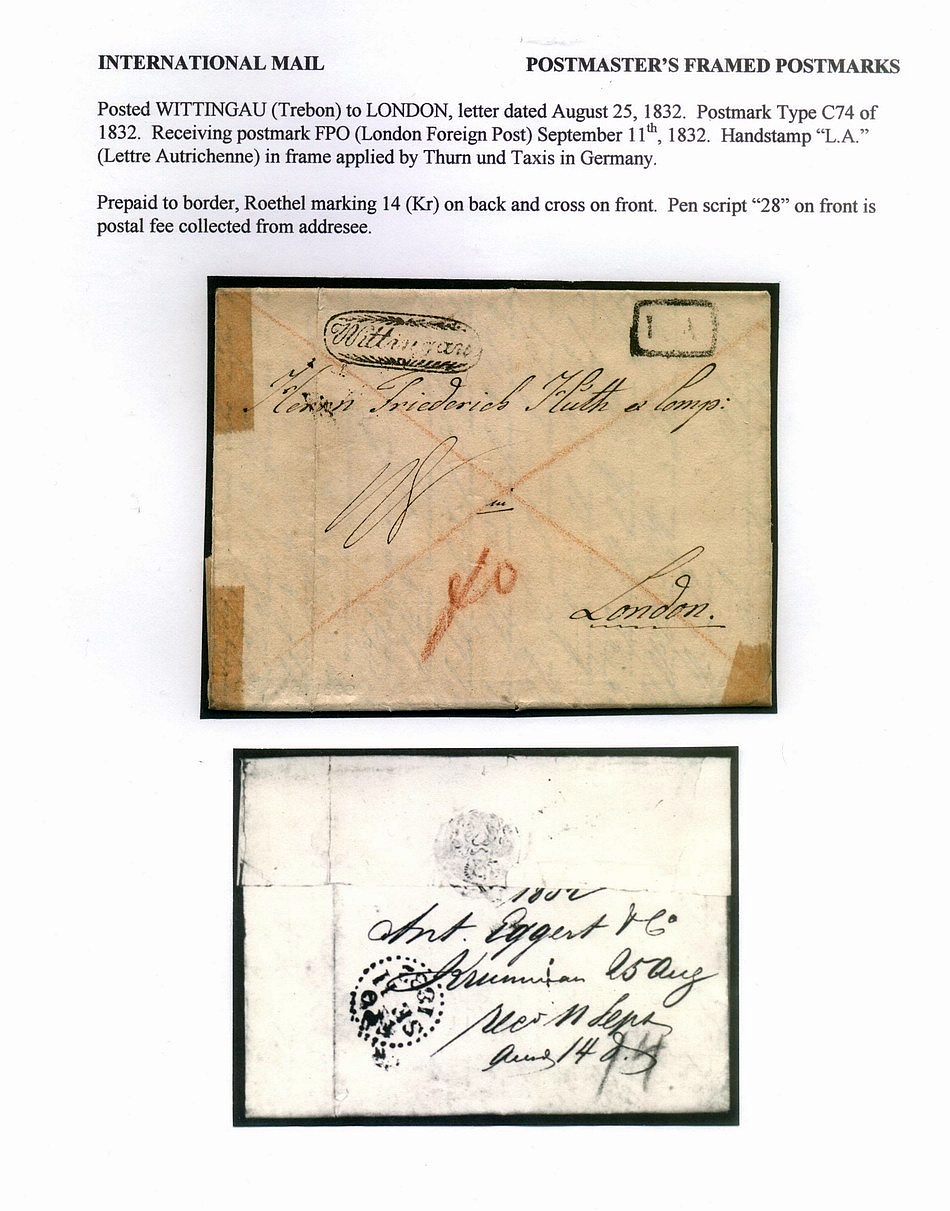 INTERNATIONAL MAIL
POSTMASTER'S FRAMED POSTMARKS
Posted WITTINGAU (Trebon) to LONDON, letter dated August 25, 1832. Postmark Type C74 of
1832. Receiving postmark FPO (London Foreign Post) September 11th, 1832. Handstamp “L.A.”
(Lettre Autrichenne) in frame applied by Thurn und Taxis in Germany.
Prepaid to border, Roethel marking 14 (Kr) on back and cross on front. Pen script “28” on front is
postal fee collected from addresee.
Wittingau
L.A.
Herrn Friederich Huth & Comp:
in
London.
1832
Ant. Eggert & Co
25 Aug
rec 11 Sept
14
14